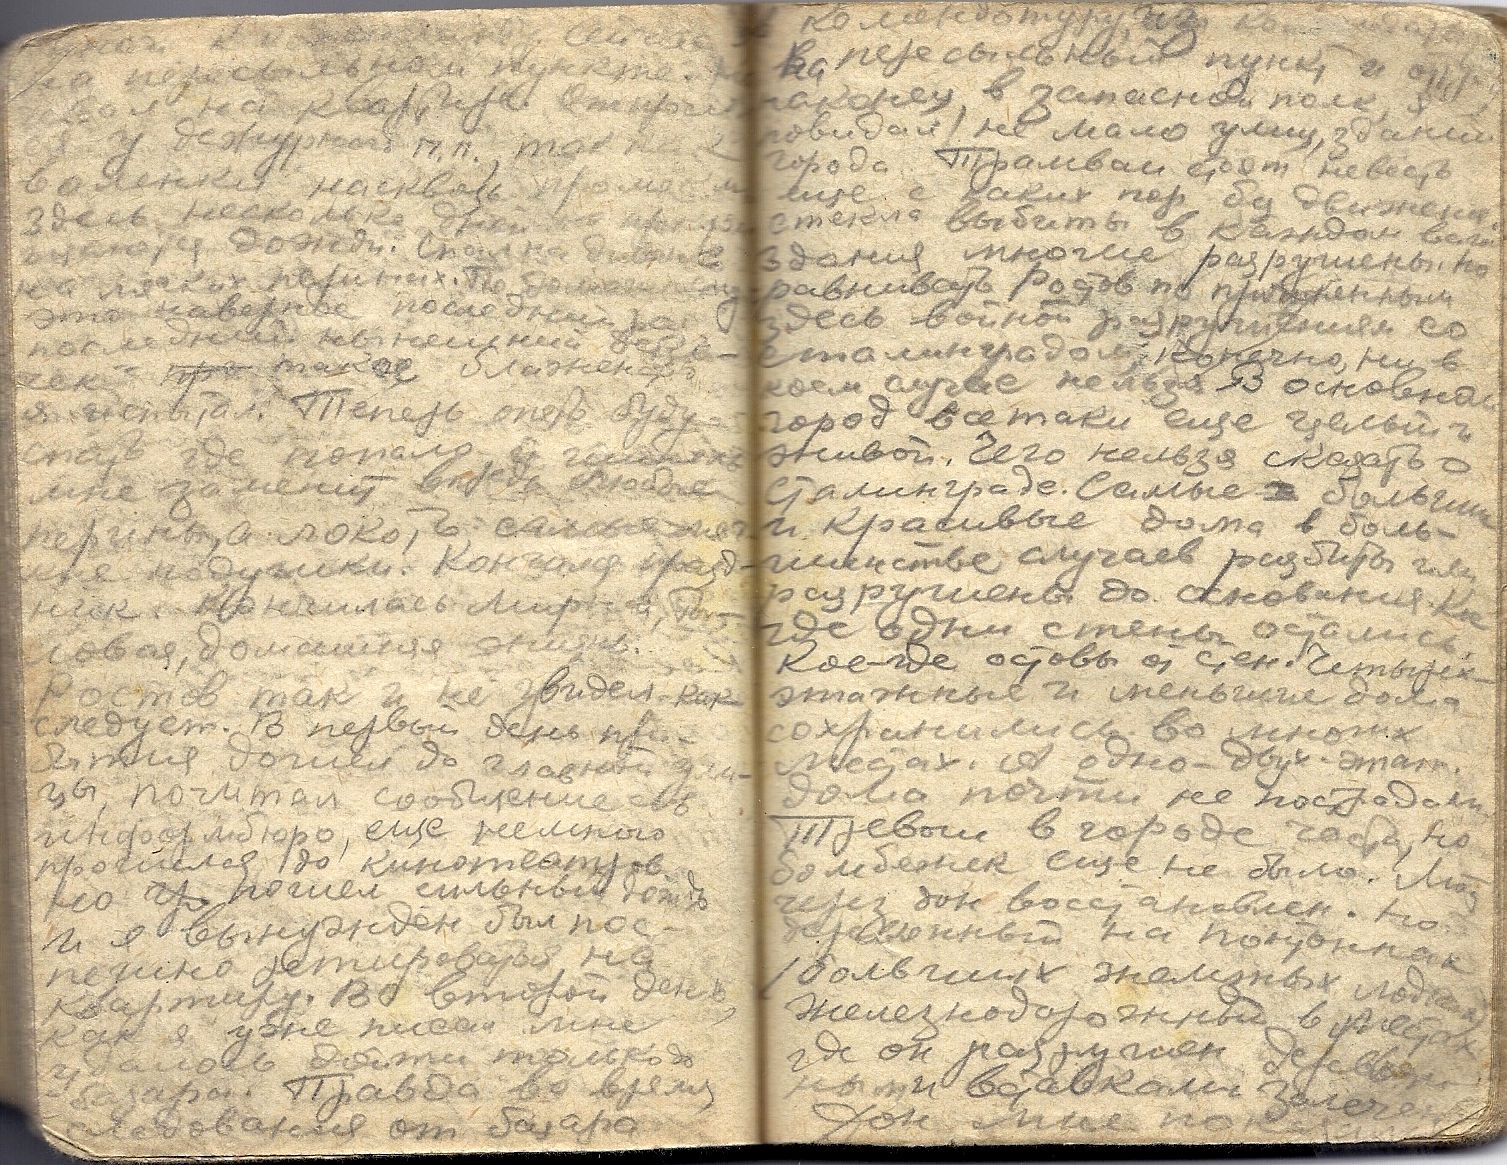 на пересыльном пункте.
вал на квартире. Отпросил
ся у дежурного п.п., так как
валенки насквозь промокли
здесь несколько дней не прекра
щаются дожди. Спал на диване
на мягких перинах.
это наверное последний раз
последний нынешний
такое блаженство
я испытал. Теперь опять буду
спать где попало и
мне заменит вновь любые
перины, а локоть самые мяг-
кие подушки. Кончался празд-
ник. Кончилась мирная, ты-
ловая, домашняя жизнь.
Ростов так и не увидел как
следует. В первый день при-
бытия дошел до главной ули-
цы, почитал сообщение от
информбюро, еще немного
прошелся до кинотеатров
но тут пошел сильный дождь
и я вынужден был пос-
пешно ретироваться на
квартиру. Во второй день,
как я уже писал мне
удалось дойти только до
базара. Правда во время
следования от базара
в комендатуру, из комендатуры
на пересыльный пункт и
наконец, в запасной полк, я
повидал не мало улиц, зданий
города. Трамваи стоят невесть
еще с каких пор без движения
стекла выбиты в каждом ваго
здания многие разрушены. Но
равнивать Ростов по причиненным
здесь войной разрушениям со
сталинградом, конечно, ни в
коем случае нельзя. В основном
город всетаки еще целый и
живой. Чего нельзя сказать о
Сталинграде. Самые большие
и красивые дома в боль-
шинстве случаев разбиты или
разрушены до основания. Кое
где одни стены остались,
кое-где остовы от стен. Четырех-
этажные и меньшие дома
сохранились во многих
местах. А одно-двух-этаж.
дома почти не пострадали
Тревоги в городе часты, но
бомбежек еще не было. Мост
через дон восстановлен.
на понтонах
(больших железных лодках)
Железнодорожный в местах
где он разрушен деревян
ными вставками залечен
Дон мне